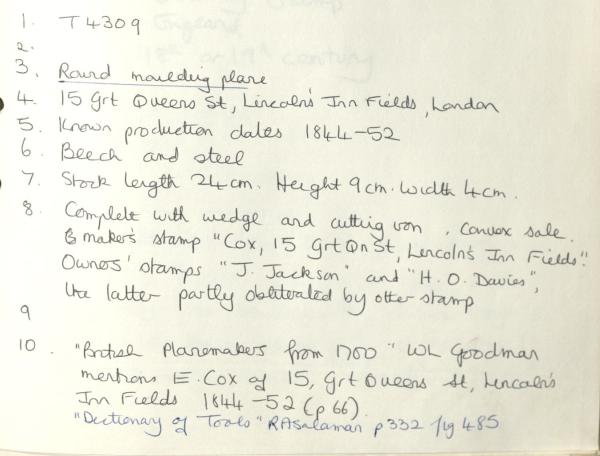 1. T4309
2.
3. Round moulding plane
4. 15 Grt Queens St, Lincoln's Inn Fields, London
5. Known production dates 1844-52
6. Beech and steel
7. Stock length 24cm. Height 9cm. Width 4cm.
8. Complete with wedge and cutting iron, convex sole.
maker's stamp "Cox, 15 Grt Qn St, Lincoln's Inn Fields".
Owners' stamps "J. Jackson" and "H. O. Davies",
the latter partly obliterated by other stamp
9
10. "British Planemakers from 1700" WL Goodman
mentions E. Cox of 15, Grt Queens St, Lincoln's
Inn Fields 1844-52 (p66).
"Dictionary of Tools" RA Salaman p332 fig 485